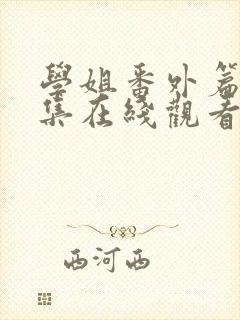 學姐番外篇
集在綫觀看
西河西